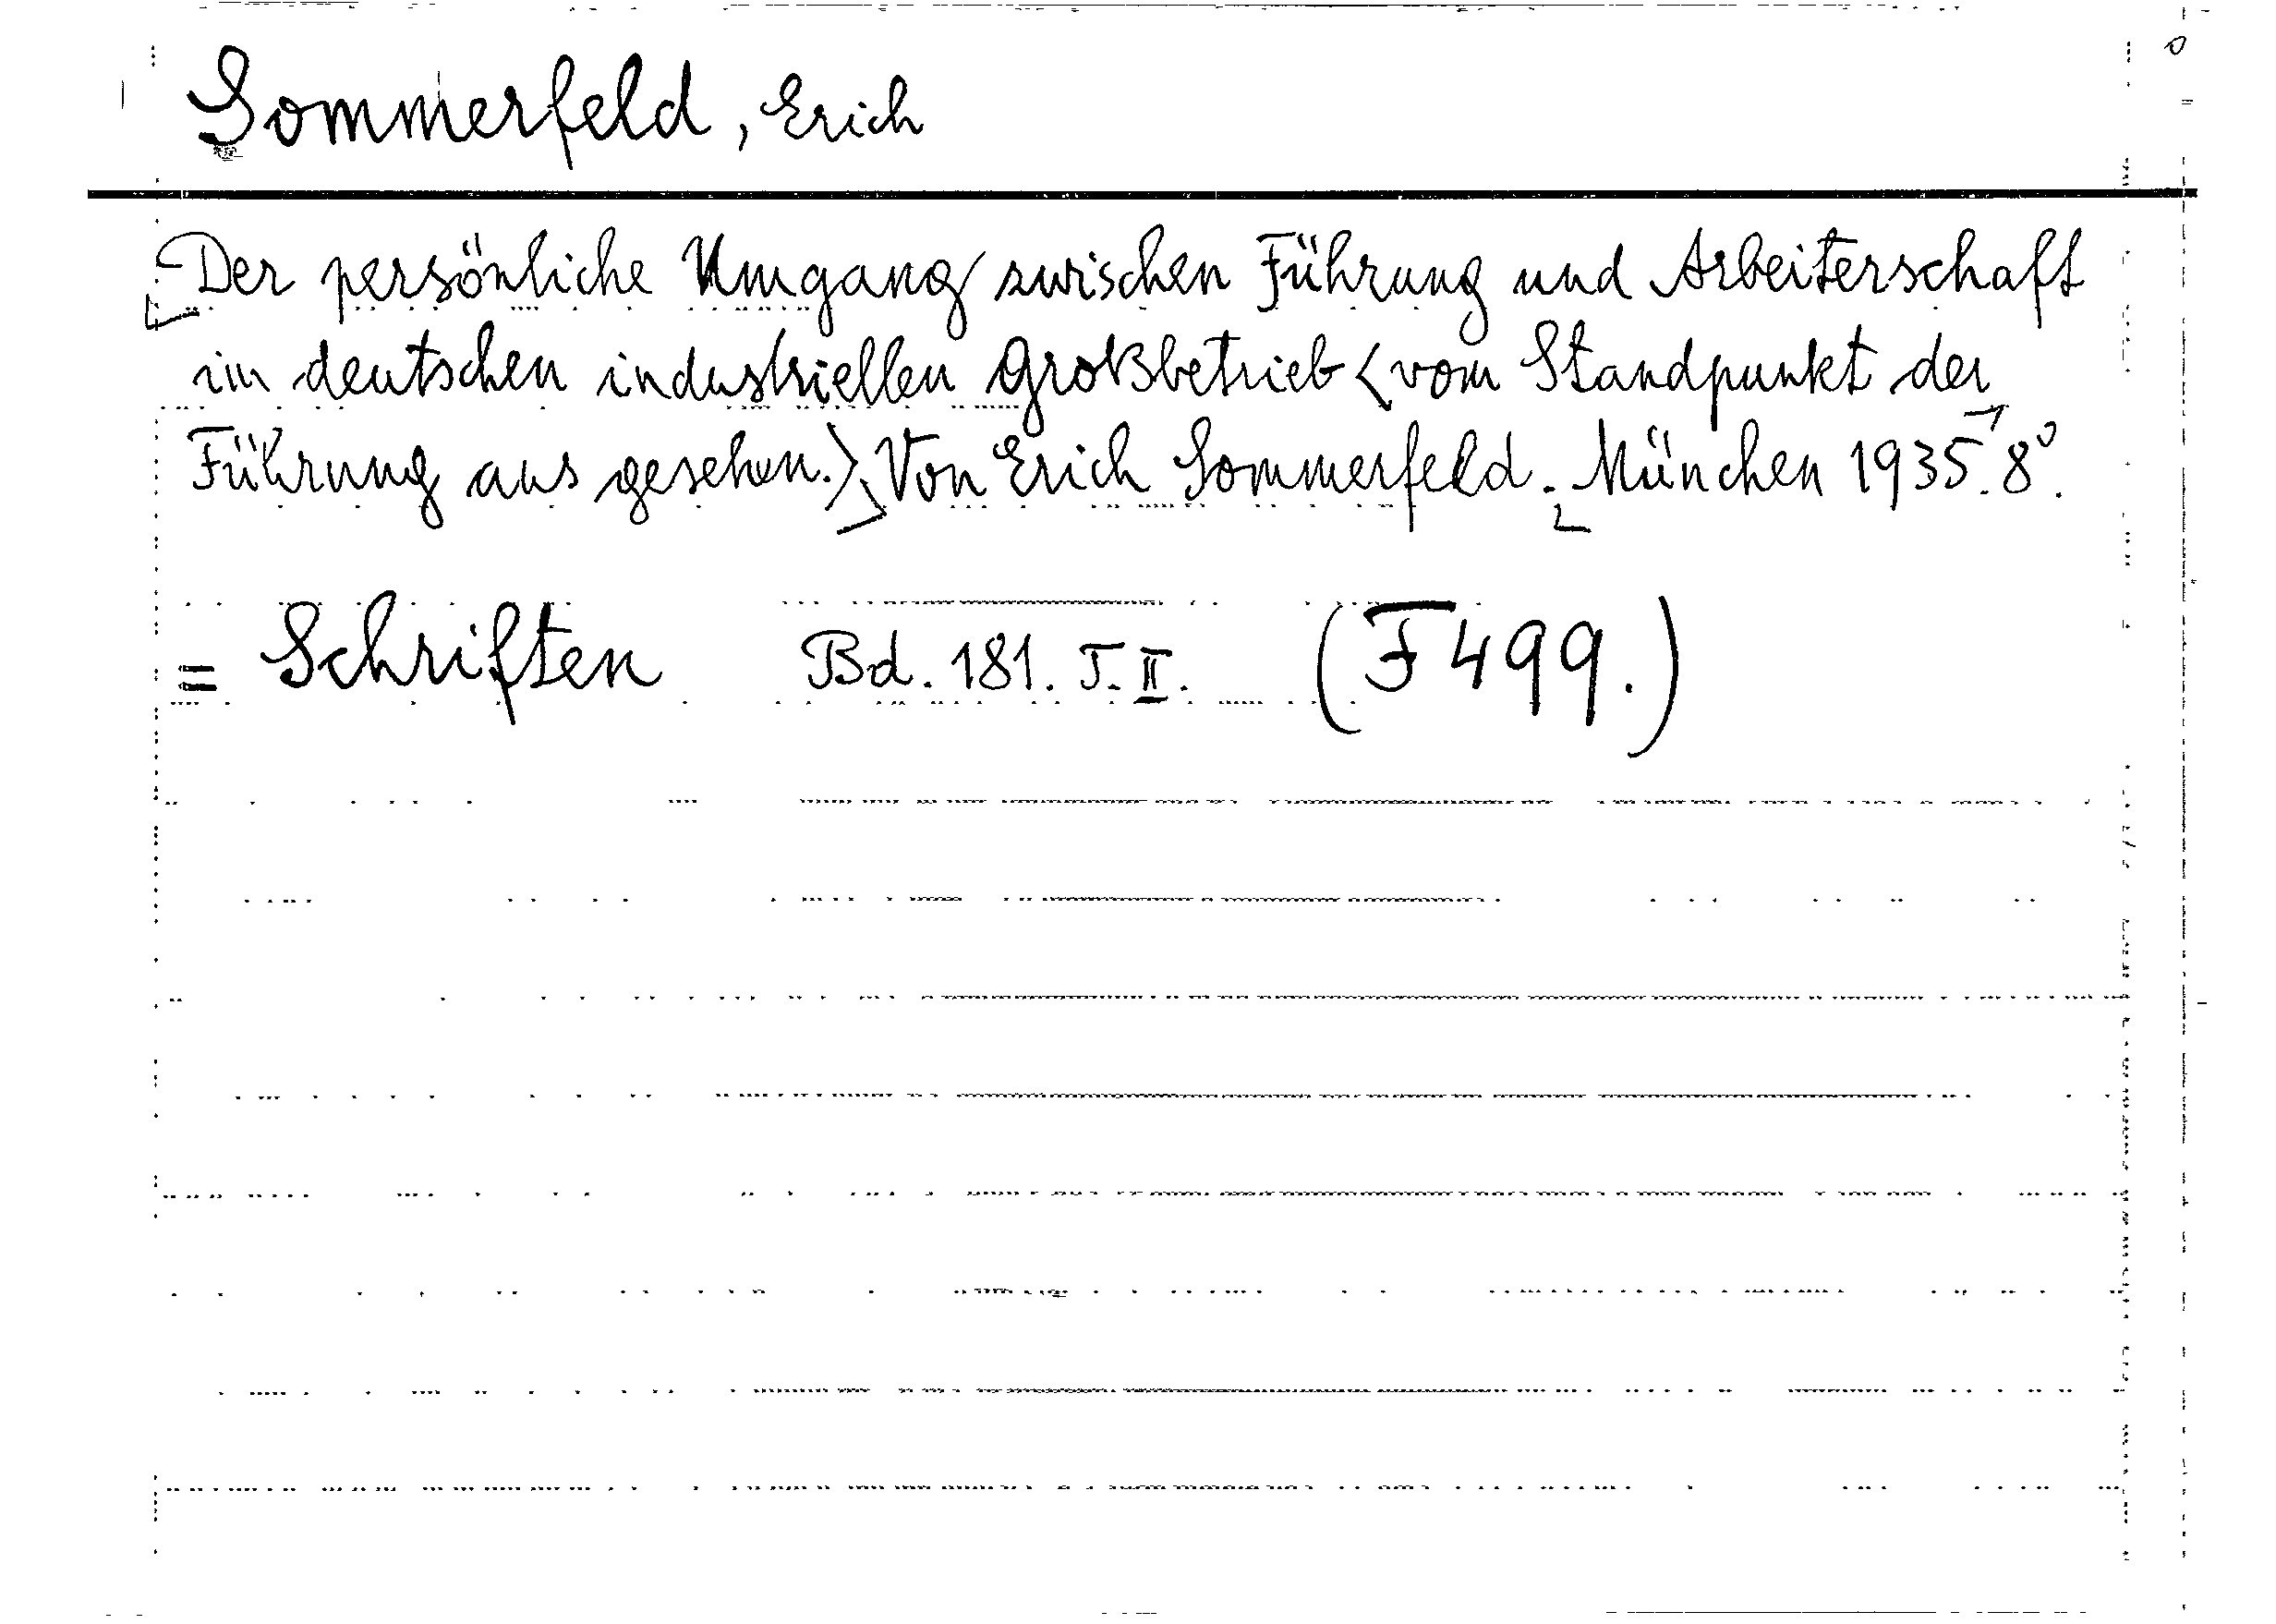 Sommerfeld, Erich
Der persönliche Umgang zwischen Führung und Arbeiterschaft
im deutschen industriellen Großbetrieb <vom Standpunkt der
Führung aus gesehen.> Von Erich Sommerfeld. München 1935. 8°.
= Schriften Bd. 181. T. II. (F 499.)